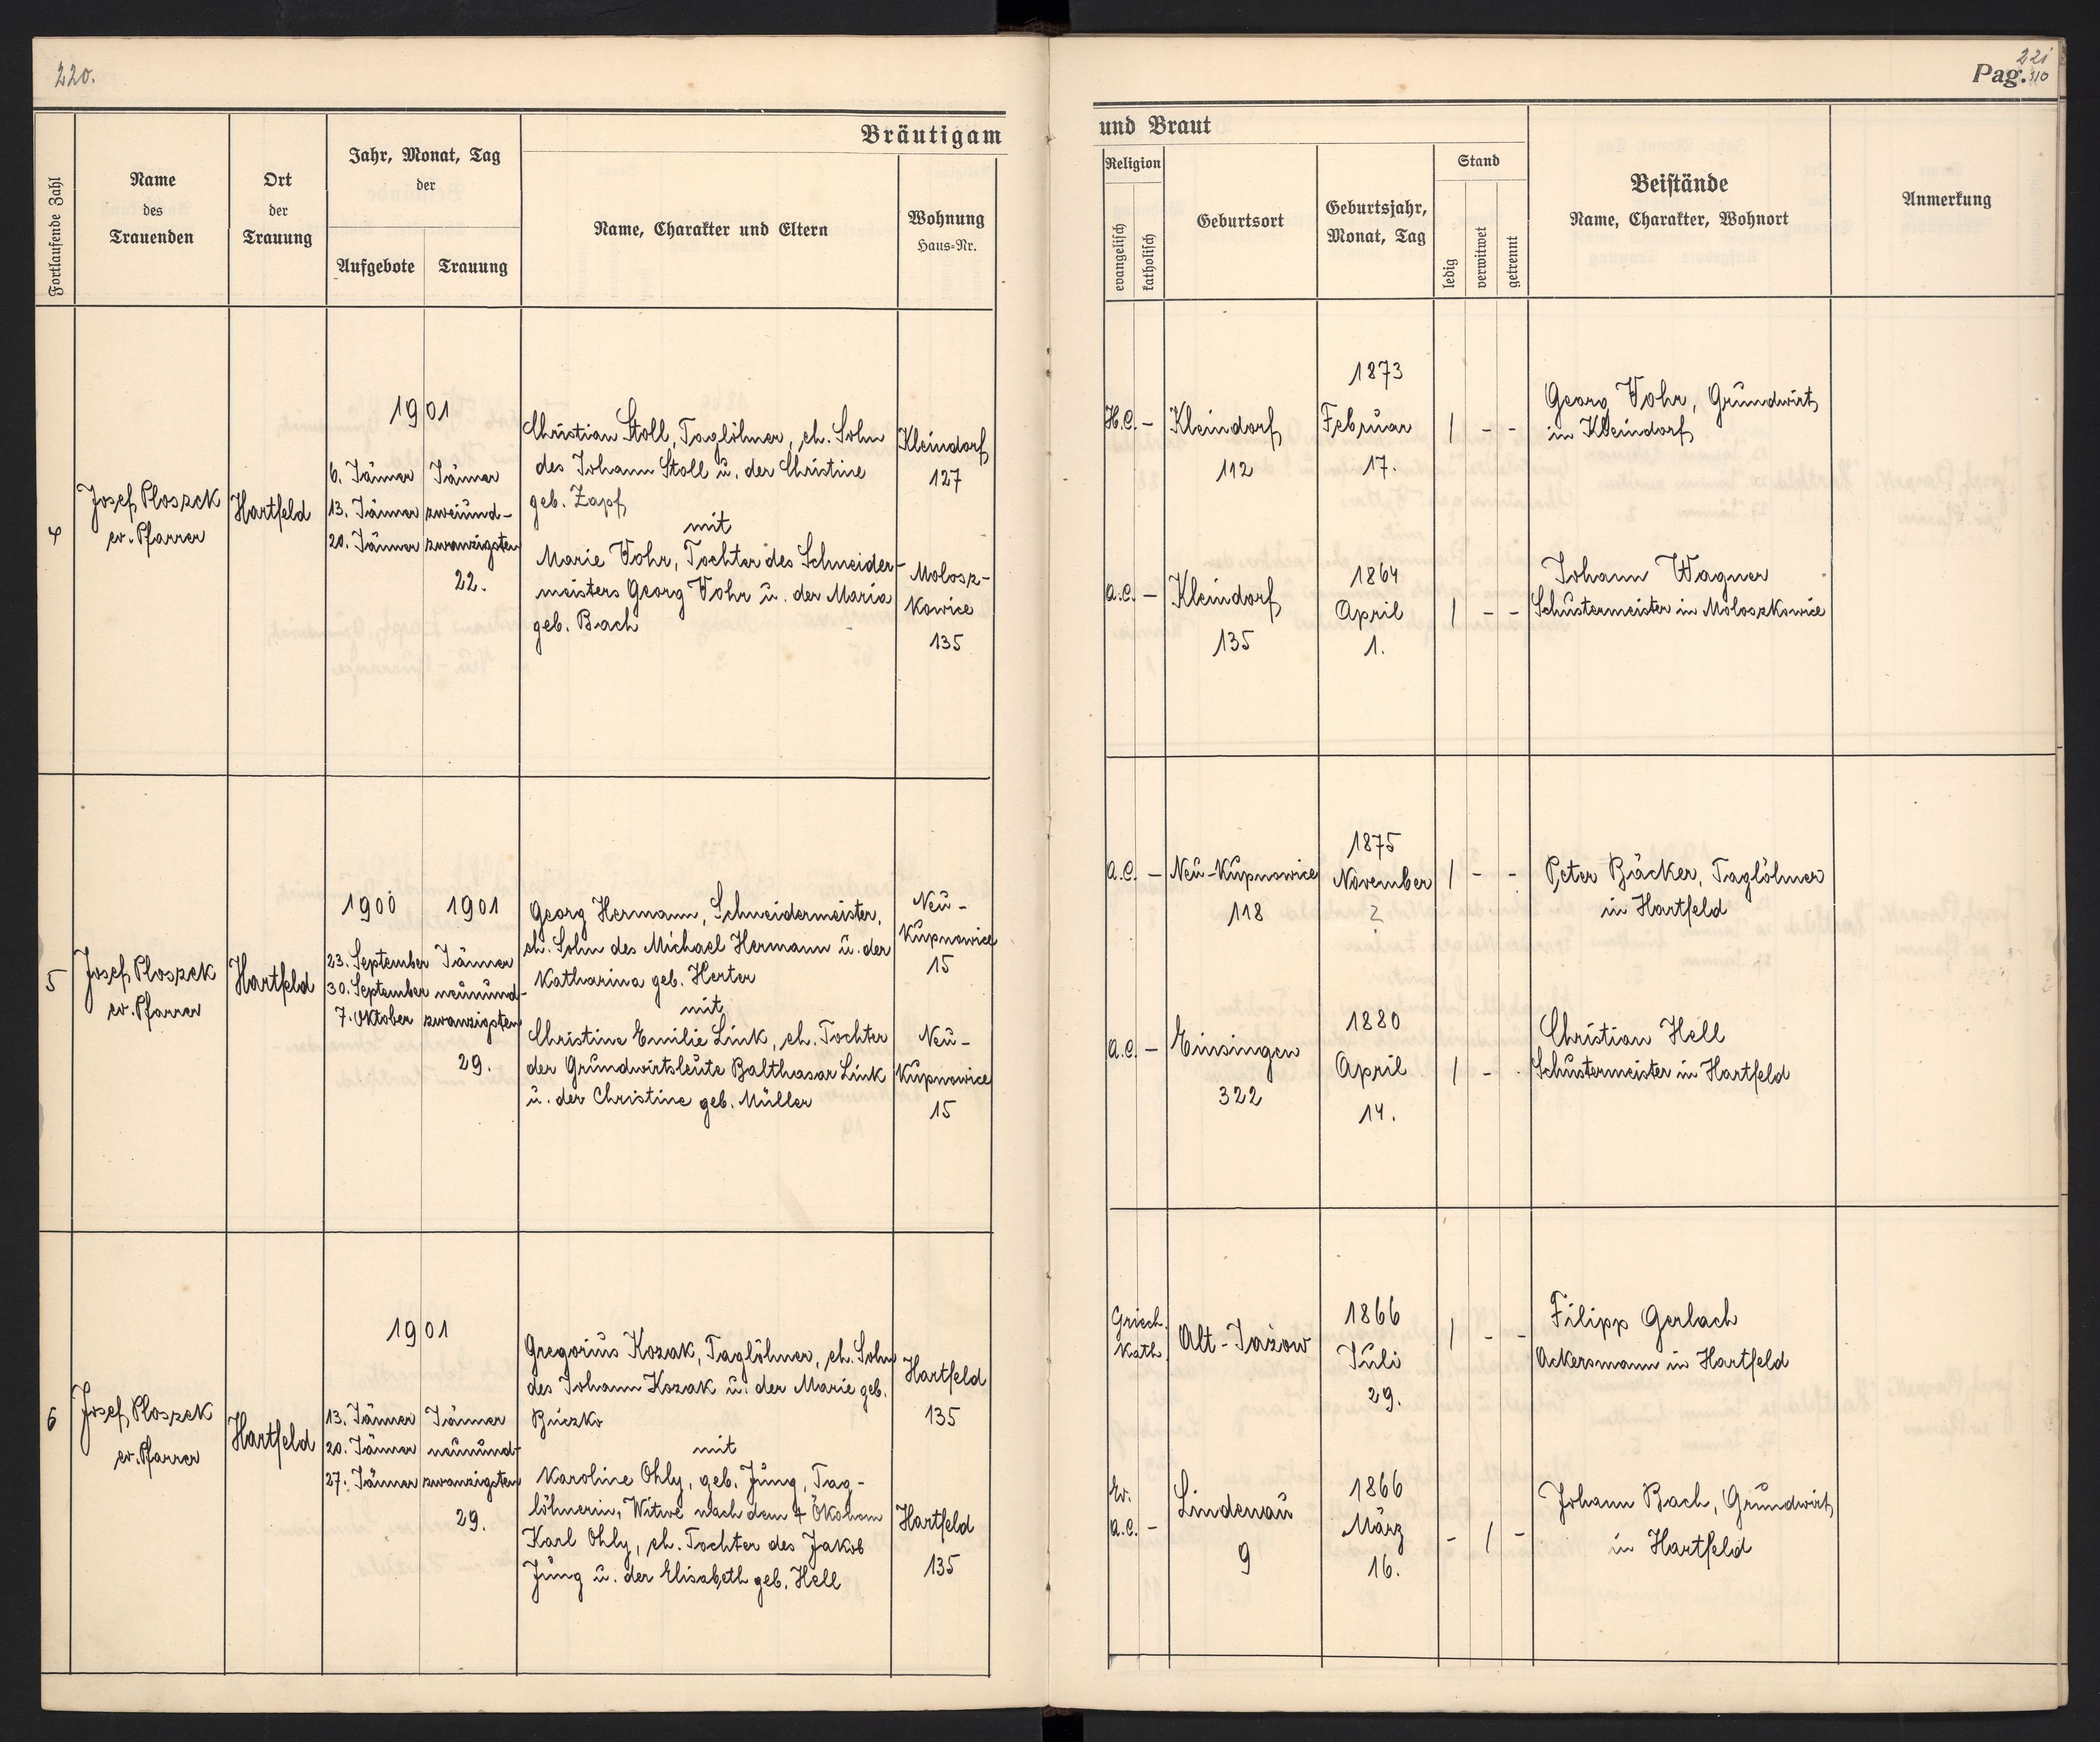 220.
221
Pag. 110
Bräutigam
und Braut
Fortlaufende Zahl
Name
des
Trauenden
Ort
der
Trauung
Jahr, Monat, Tag
der
Aufgebote
Trauung
Name, Charakter und Eltern
Wohnung
Haus-Nr.
Religion
evangelisch
katholisch
Geburtsort
Geburtsjahr,
Monat, Tag
Stand
ledig
verwitwet
getrennt
Beistände
Name, Charakter, Wohnort
Anmerkung
4
Josef Ploszek
ev. Pfarrer
Hartfeld
1901
6. Jänner
13. Jänner
20. Jänner
Jänner
zweiund-
zwanzigsten
22.
Christian Stoll, Taglöhner, eh. Sohn
des Johann Stoll u. der Christine
geb. Zapf
mit
Marie Vohr, Tochter des Schneider-
meisters Georg Vohr u. der Maria
geb. Bach
Kleindorf
127
Molosz-
kowice
135
H.C. -
Kleindorf
112
1873
Februar
17.
/ - -
Georg Vohr, Grundwirt
in Kleindorf
A.C. -
Kleindorf
135
1864
April
1.
/ - -
Johann Wagner
Schustermeister in Moloszkowice
5
Josef Ploszek
ev. Pfarrer
Hartfeld
1900
23. September
30. September
7. Oktober
1901
Jänner
neunund-
zwanzigsten
29.
Georg Hermann, Schneidermeister,
eh. Sohn des Michael Hermann u. der
Katharina geb. Herter
mit
Christine Emilie Link, eh. Tochter
der Grundwirtsleute Balthasar Link
u. der Christine geb. Müller
Neu-
Kupnowice
15
Neu-
Kupnowice
15
A.C. -
Neu-Kupnowice
118
1875
November
2
/ - -
Peter Bäcker, Taglöhner
in Hartfeld
A.C. -
Einsingen
322
1880
April
14.
/ - -
Christian Hell
Schustermeister in Hartfeld
6
Josef Ploszek
ev. Pfarrer
Hartfeld
1901
13. Jänner
20. Jänner
27. Jänner
Jänner
neunund-
zwanzigsten
29.
Gregorius Kozak, Taglöhner, eh. Sohn
des Johann Kozak u. der Marie geb.
Buczko
mit
Karoline Ohly, geb. Jung, Tag-
löhnerin, Witwe nach dem † Ökonom
Karl Ohly, eh. Tochter des Jakob
Jung u. der Elisabeth geb. Hell
Hartfeld
135
Hartfeld
135
Griech.
kath.
Alt-Jażow
1866
Juli
29.
/ - -
Filipp Gerlach
Ackersmann in Hartfeld
Ev.
A.C. -
Lindenau
9
1866
März
16.
- / -
Johann Bach, Grundwirt
in Hartfeld